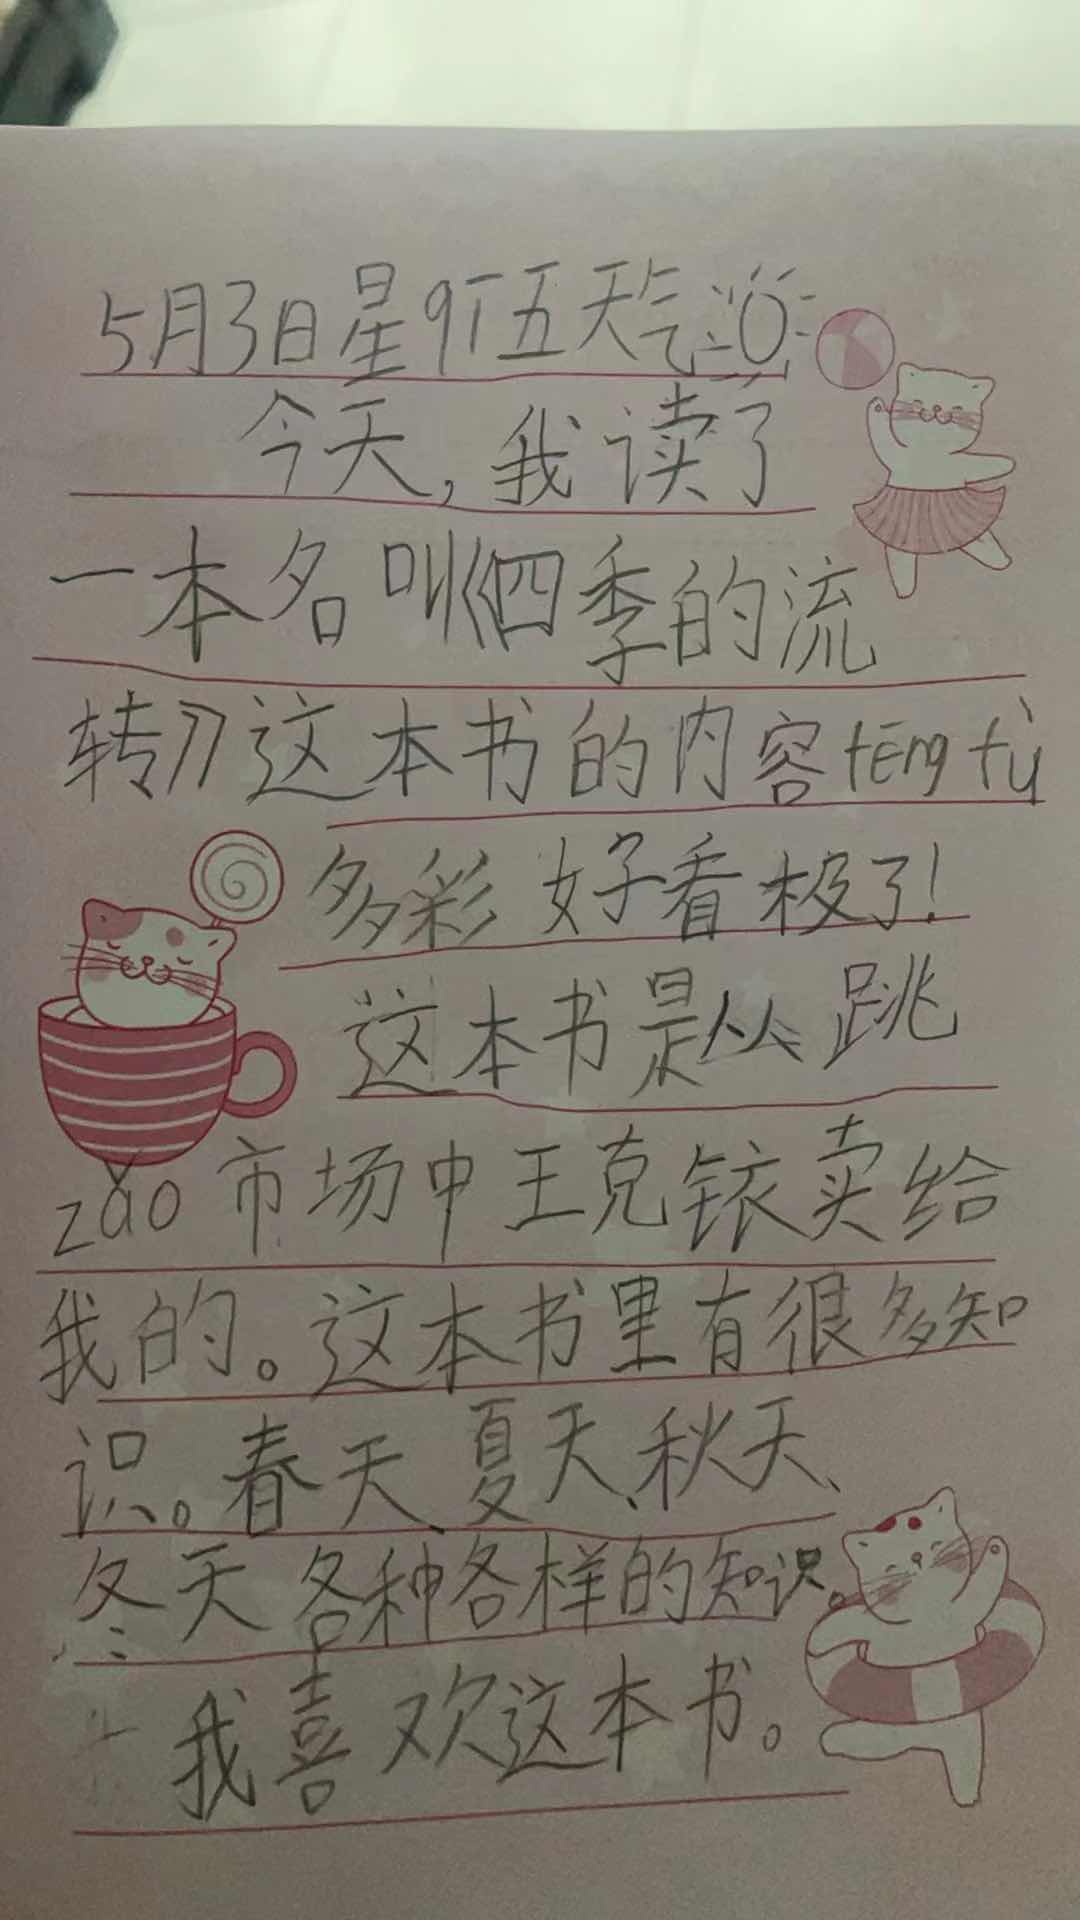 5月3日星qī五天气
今天，我读了
一本名叫《四季的流
转》这本书的内容fēng fù
多彩 好看极了！
这本书是从跳
zǎo市场中王克铱卖给
我的。这本书里有很多知
识。春天、夏天、秋天、
冬天各种各样的知识。
我喜欢这本书。